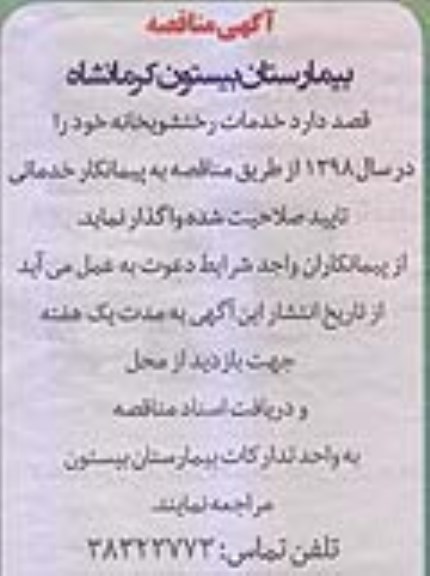 آگهی مناقصه
بیمارستان بیستون کرمانشاه
قصد دارد خدمات رختشویخانه خود را
در سال ۱۳۹۸ از طریق مناقصه به پیمانکار خدماتی
تایید صلاحیت شده واگذار نماید
از پیمانکاران واجد شرایط دعوت به عمل می آید
از تاریخ انتشار این آگهی به مدت یک هفته
جهت بازدید از محل
و دریافت اسناد مناقصه
به واحد تدارکات بیمارستان بیستون
مراجعه نمایند.
تلفن تماس: ۳۸۳۲۲۷۷۳